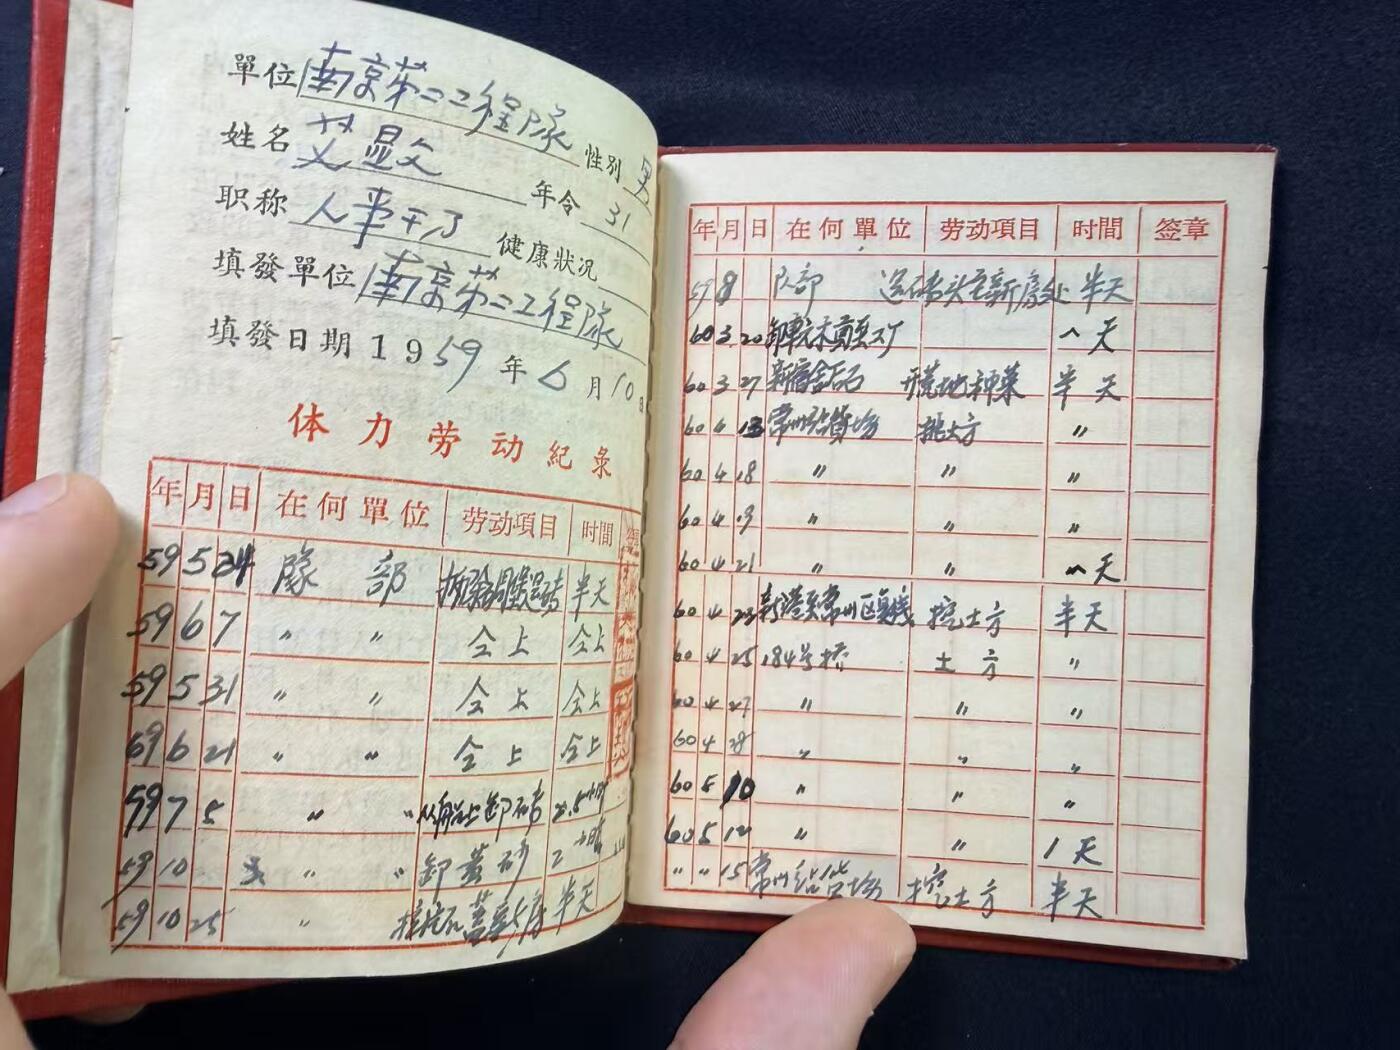 單位 南京第二工程隊
性别 男
姓名 艾显文
年令 31
职称 人事干了
健康狀况
填發單位 南京第二工程隊
填發日期 1959年6月10日
体力劳动紀彔
年 月 日 在何單位 劳动項目 时間
59 5 24 隊部 拆除碉堡 砖 半天
59 6 7 〃 〃 仝上 仝上
59 5 31 〃 〃 仝上 仝上
59 6 21 〃 〃 仝上 仝上
59 7 5 〃 〃 从船上卸砖 2.5小时
59 10 〃 〃 卸黄砂 2小时
59 10 25 〃 挖 石盖新房 半天
年 月 日 在何單位 劳动項目 时間 签章
59 8 队部 运砖头至新房处 半天
60 3 20 卸車 木 至工厂 天
60 3 27 新宿舍后 开荒地种菜 半天
60 4 13 常州站貨场 挑土方 〃
60 4 18 〃 〃 〃
60 4 19 〃 〃 〃
60 4 21 〃 〃 天
60 4 23 新 至常州区 线 挖土方 半天
60 4 25 184号桥 土方 〃
60 4 27 〃 〃 〃
60 4 28 〃 〃 〃
60 5 10 〃 〃 〃
60 5 12 〃 〃 1天
〃 〃 15 常州站货场 挖土方 半天